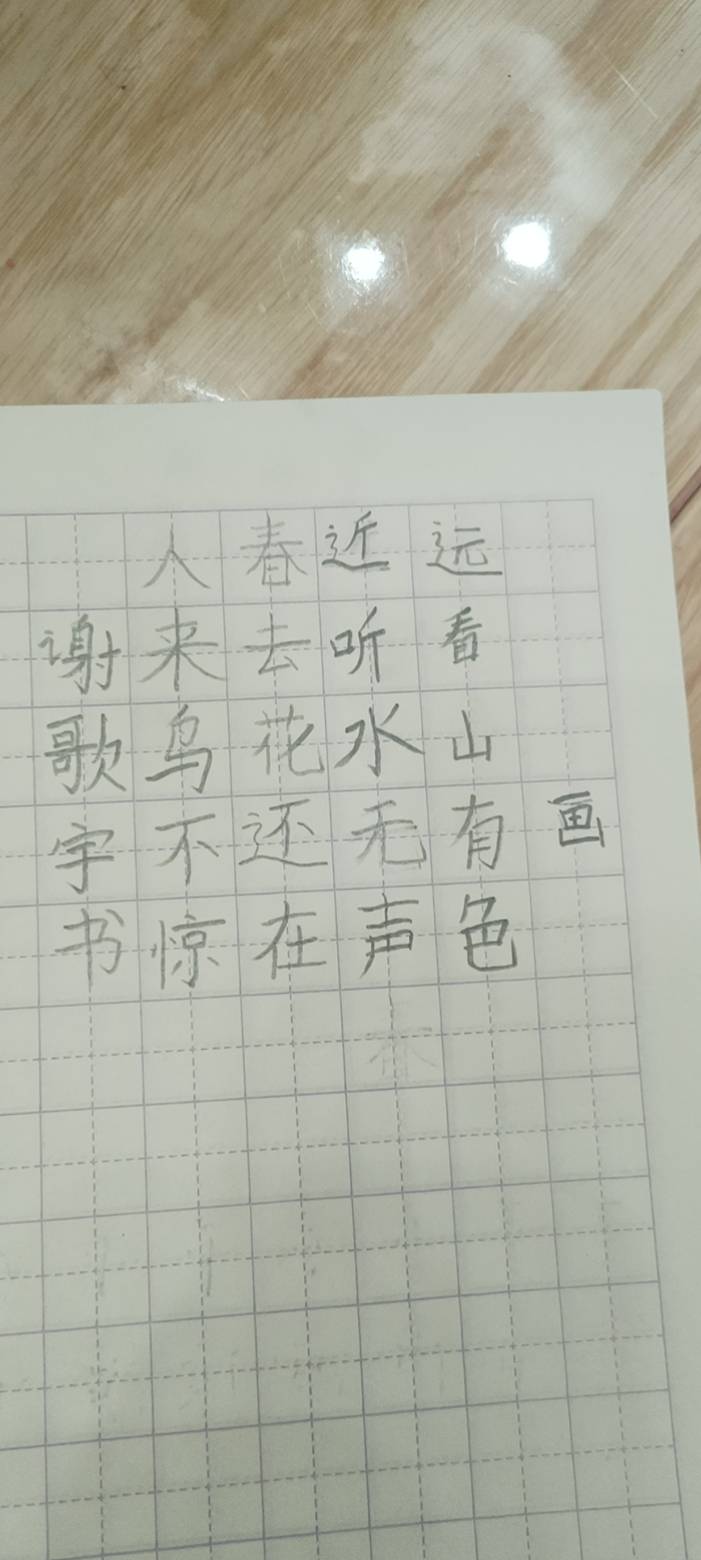 画
远看山有色
近听水无声
春去花还在
人来鸟不惊
谢歌宇书